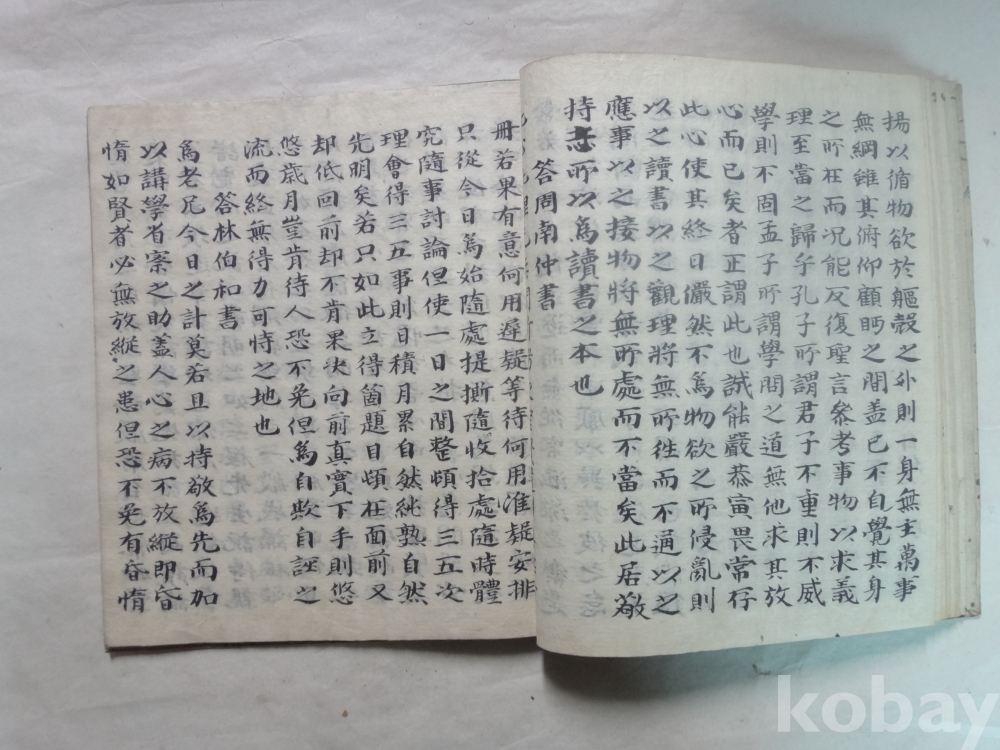 揚以循物欲於軀殼之外則一身無主萬事
無綱雖其俯仰顧眄之間盖已不自覺其身
之所在而况能反復聖言參考事物以求義
理至當之歸乎孔子所謂君子不重則不威
學則不固孟子所謂學問之道無他求其放
心而已矣者正謂此也誠能嚴恭寅畏常存
此心使其終日儼然不爲物欲之所侵亂則
以之讀書以之觀理將無所徃而不通以之
應事以之接物將無所處而不當矣此居敬
持志所以爲讀書之本也
答周南仲書
冊若果有意何用遲疑等待何用准疑安排
只從今日爲始隨處提撕隨收拾處隨時體
究隨事討論但使一日之間整頓得三五次
理會得三五事則日積月累自然純熟自然
先明矣若只如此立得箇題目頃在面前又
却低回前却不肯果决向前真實下手則悠
悠歲月豈肯待人恐不免但爲自欺自誑之
流而終無得力可恃之地也
答林伯和書
爲老兄今日之計莫若且以持敬爲先而加
以講學省察之助盖人心之病不放縱即昏
惰如賢者必無放縱之患但恐不免有昏惰
kobay